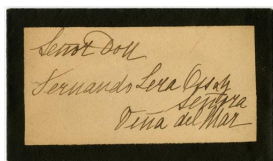 Señor Don
Fernando Lera
Señora
Viña del Mar